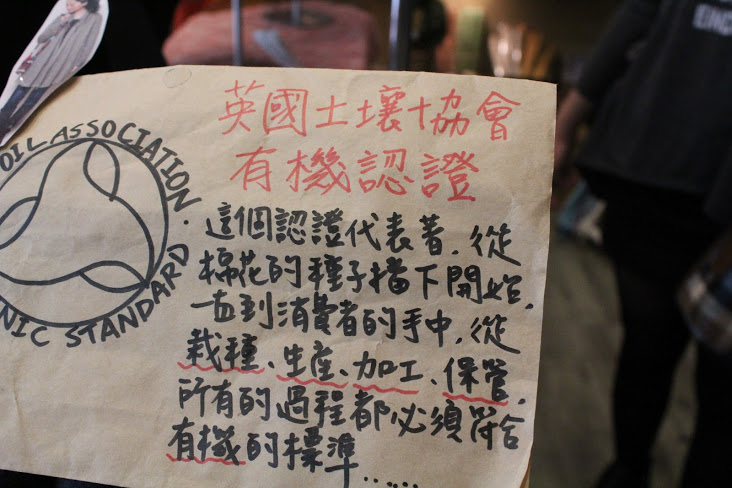 英國土壤協會
有機認證
OIL ASSOCIATION
NIC STANDARD
這個認證代表著,從
棉花的種子擋下開始,
一直到消費者的手中,從
栽種、生産、加工、保管,
所有的過程都必須符合
有機的標準......